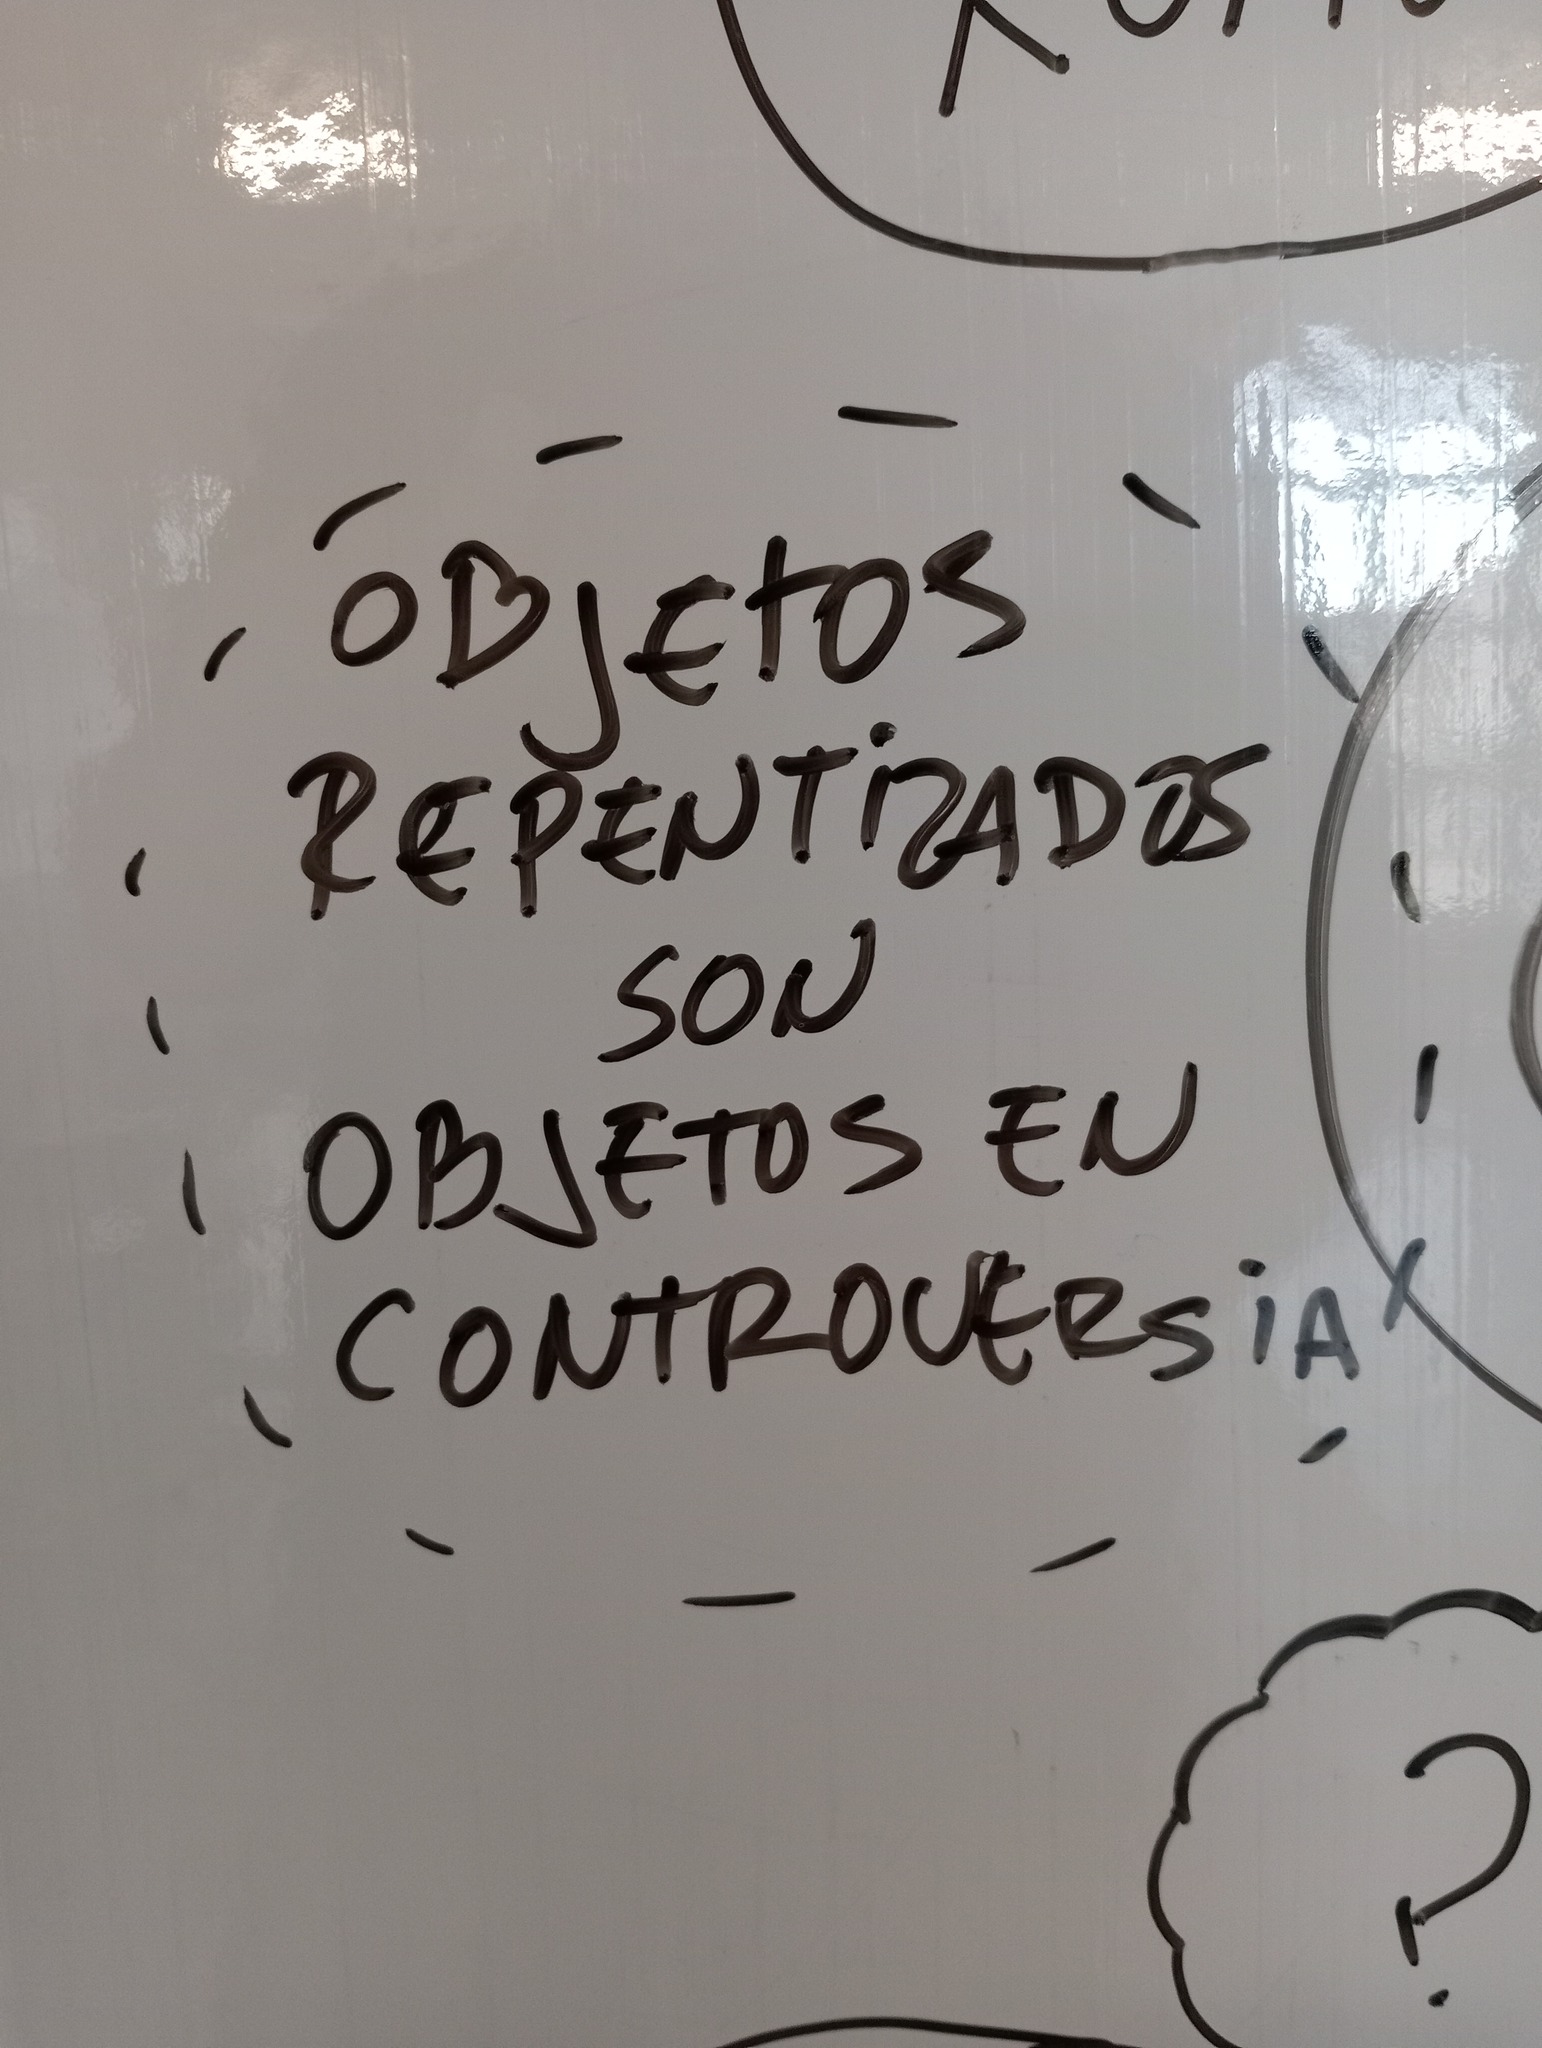 OBJETOS
REPENTIZADOS
SON
OBJETOS EN
CONTROVERSIA
?